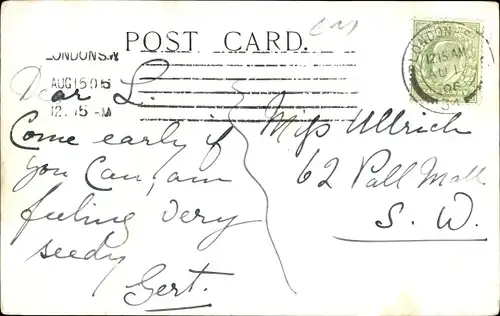 POST CARD.
LONDON S.W
AUG 15 06
12.15 AM
LONDON
12.15 AM
AU
06
Dear L.
Come early if
you can, am
feeling very
seedy
Gert.
Miss Ullrich
62 Pall Mall
S. W.